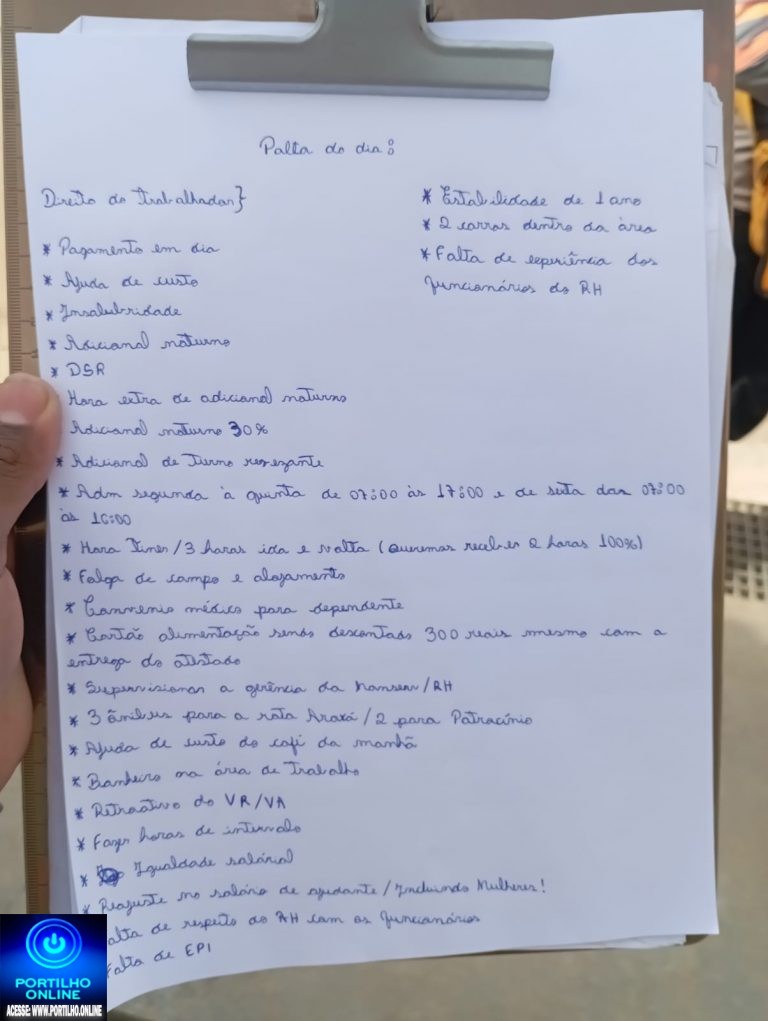 Palta do dia:
Direito do Trabalhador}
* Pagamento em dia
* Ajuda de custo
* Insalubridade
* Adicional noturno
* DSR
Hora extra de adicional noturno
Adicional noturno 30%
* Adicional de Turno
* Adm segunda à quinta de 07:00 às 17:00 e de sexta das 07:00
às 16:00
* Hora /3 horas ida e volta (Queremos receber 2 horas 100%)
* Folga de campo e alojamento
* Convenio médico para dependente
* Cartão alimentação sendo descontado 300 reais mesmo com a
entrega do atestado
* Supervisionar a gerência da /RH
* 3 ônibus para a rota Araxá/2 para Patrocínio
* Ajuda de custo do café da manhã
* Banheiro na área de Trabalho
* Retroativo do VR/VA
* Fazer horas de intervalo
* Igualdade salárial
* Reajuste no salário de ajudante/Incluindo Mulheres!
alta de respeito do RH com os funcionários
Falta de EPI
* Estabilidade de 1 ano
* 2 carros dentro da área
* Falta de experiência dos
funcionários do RH
PORTILHO
ONLINE
ACESSE: WWW.PORTILHO.ONLINE